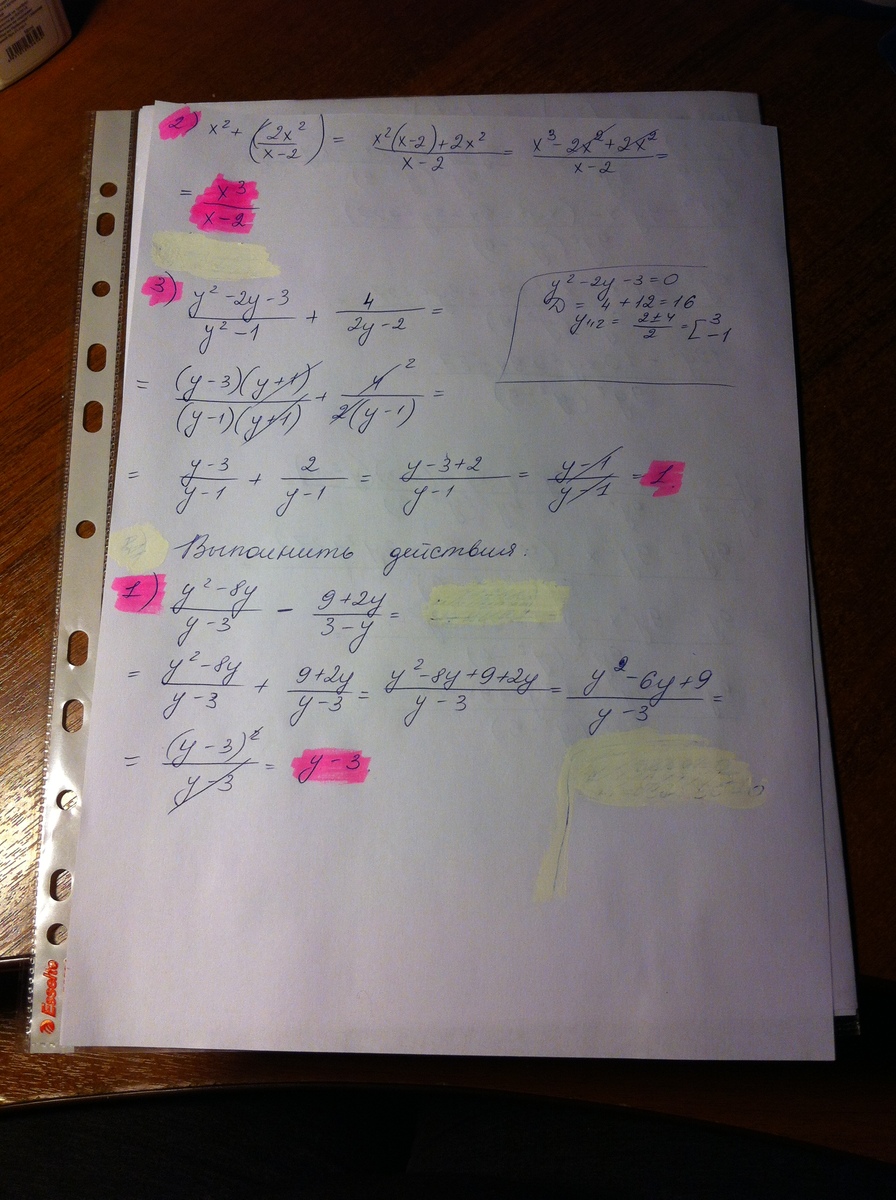 2) x² + (2x²/(x-2)) = (x²(x-2)+2x²)/(x-2) = (x³-2x²+2x²)/(x-2) =
= x³/(x-2)
3) (y²-2y-3)/(y²-1) + 4/(2y-2) =
y²-2y-3=0
D = 4+12=16
y₁,₂ = (2±4)/2 = [3 -1
= ((y-3)(y+1))/((y-1)(y+1)) + 4 2/(2(y-1)) =
= (y-3)/(y-1) + 2/(y-1) = (y-3+2)/(y-1) = (y-1)/(y-1) = 1.
Выполнить действия:
1) (y²-8y)/(y-3) - (9+2y)/(3-y) =
= (y²-8y)/(y-3) + (9+2y)/(y-3) = (y²-8y+9+2y)/(y-3) = (y²-6y+9)/(y-3) =
= (y-3)²/(y-3) = y-3.
Esselte